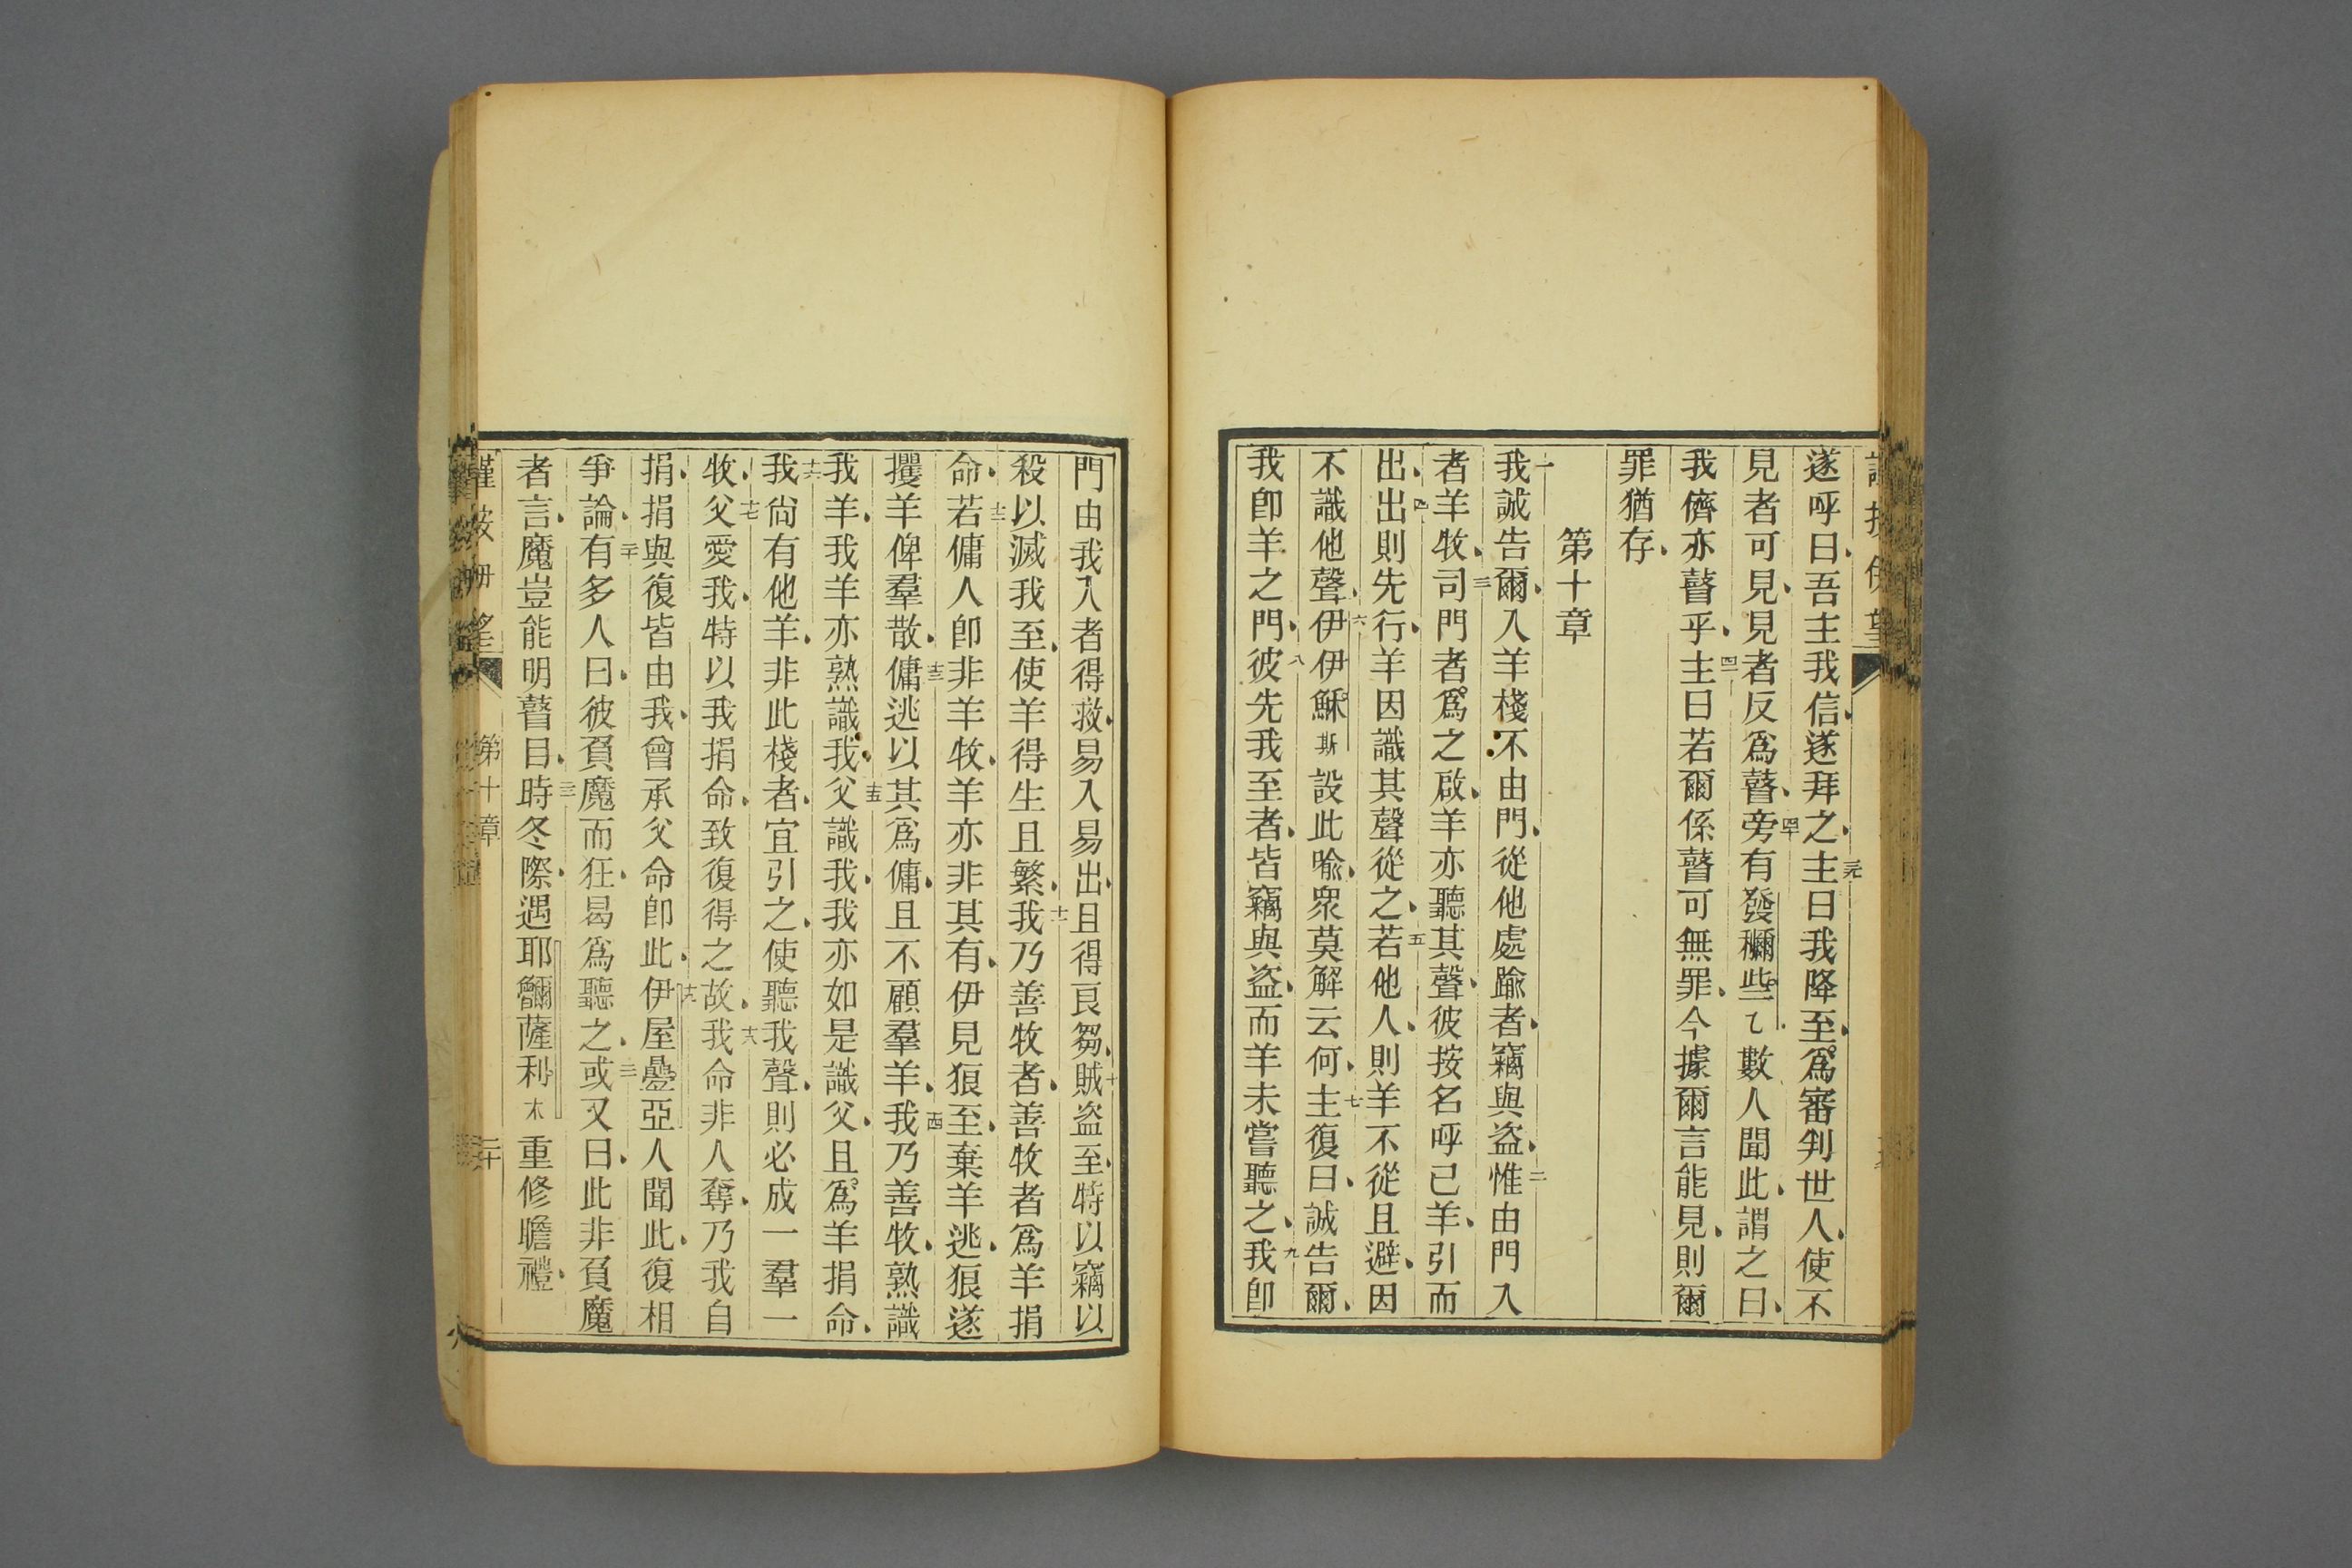 遂呼曰、吾主我信、遂拜之、三九主曰我降至、爲審判世人、使不
見者可見、見者反爲瞽、四十旁有發穪些乙數人聞此、謂之曰、
我儕亦瞽乎、四一主曰若爾係瞽可無罪、今據爾言能見、則爾
罪猶存、
第十章
一我誠告爾、入羊棧不由門、從他處踰者、竊與盜、二惟由門入
者羊牧、三司門者爲之啟、羊亦聽其聲、彼按名呼已羊、引而
出、四出則先行、羊因識其聲從之、五若他人、則羊不從且避、因
不識他聲、六伊伊穌斯設此喻、眾莫解云何、七主復曰、誠告爾、
我卽羊之門、八彼先我至者、皆竊與盜、而羊未嘗聽之、九我卽
門由我入者得救、易入易出、且得良芻、十賊盜至、特以竊以
殺以滅我至、使羊得生且繁、十一我乃善牧者、善牧者爲羊捐
命、十二若傭人卽非羊牧、羊亦非其有、伊見狼至、棄羊逃、狼遂
攫羊俾羣散、十三傭逃以其爲傭、且不顧羣羊、十四我乃善牧、熟識
我羊、我羊亦熟識我、十五父識我、我亦如是識父、且爲羊捐命、
十六我尙有他羊、非此棧者、宜引之、使聽我聲、則必成一羣一
牧、十七父愛我、特以我捐命、致復得之故、十八我命非人奪、乃我自
捐、捐與復皆由我、曾承父命卽此、十九伊屋疊亞人聞此、復相
爭論、二十有多人曰、彼負魔而狂、曷爲聽之、二一或又曰、此非負魔
者言、魔豈能明瞽目、二二時冬際、遇耶穪薩利木重修瞻禮、
第十章
二十